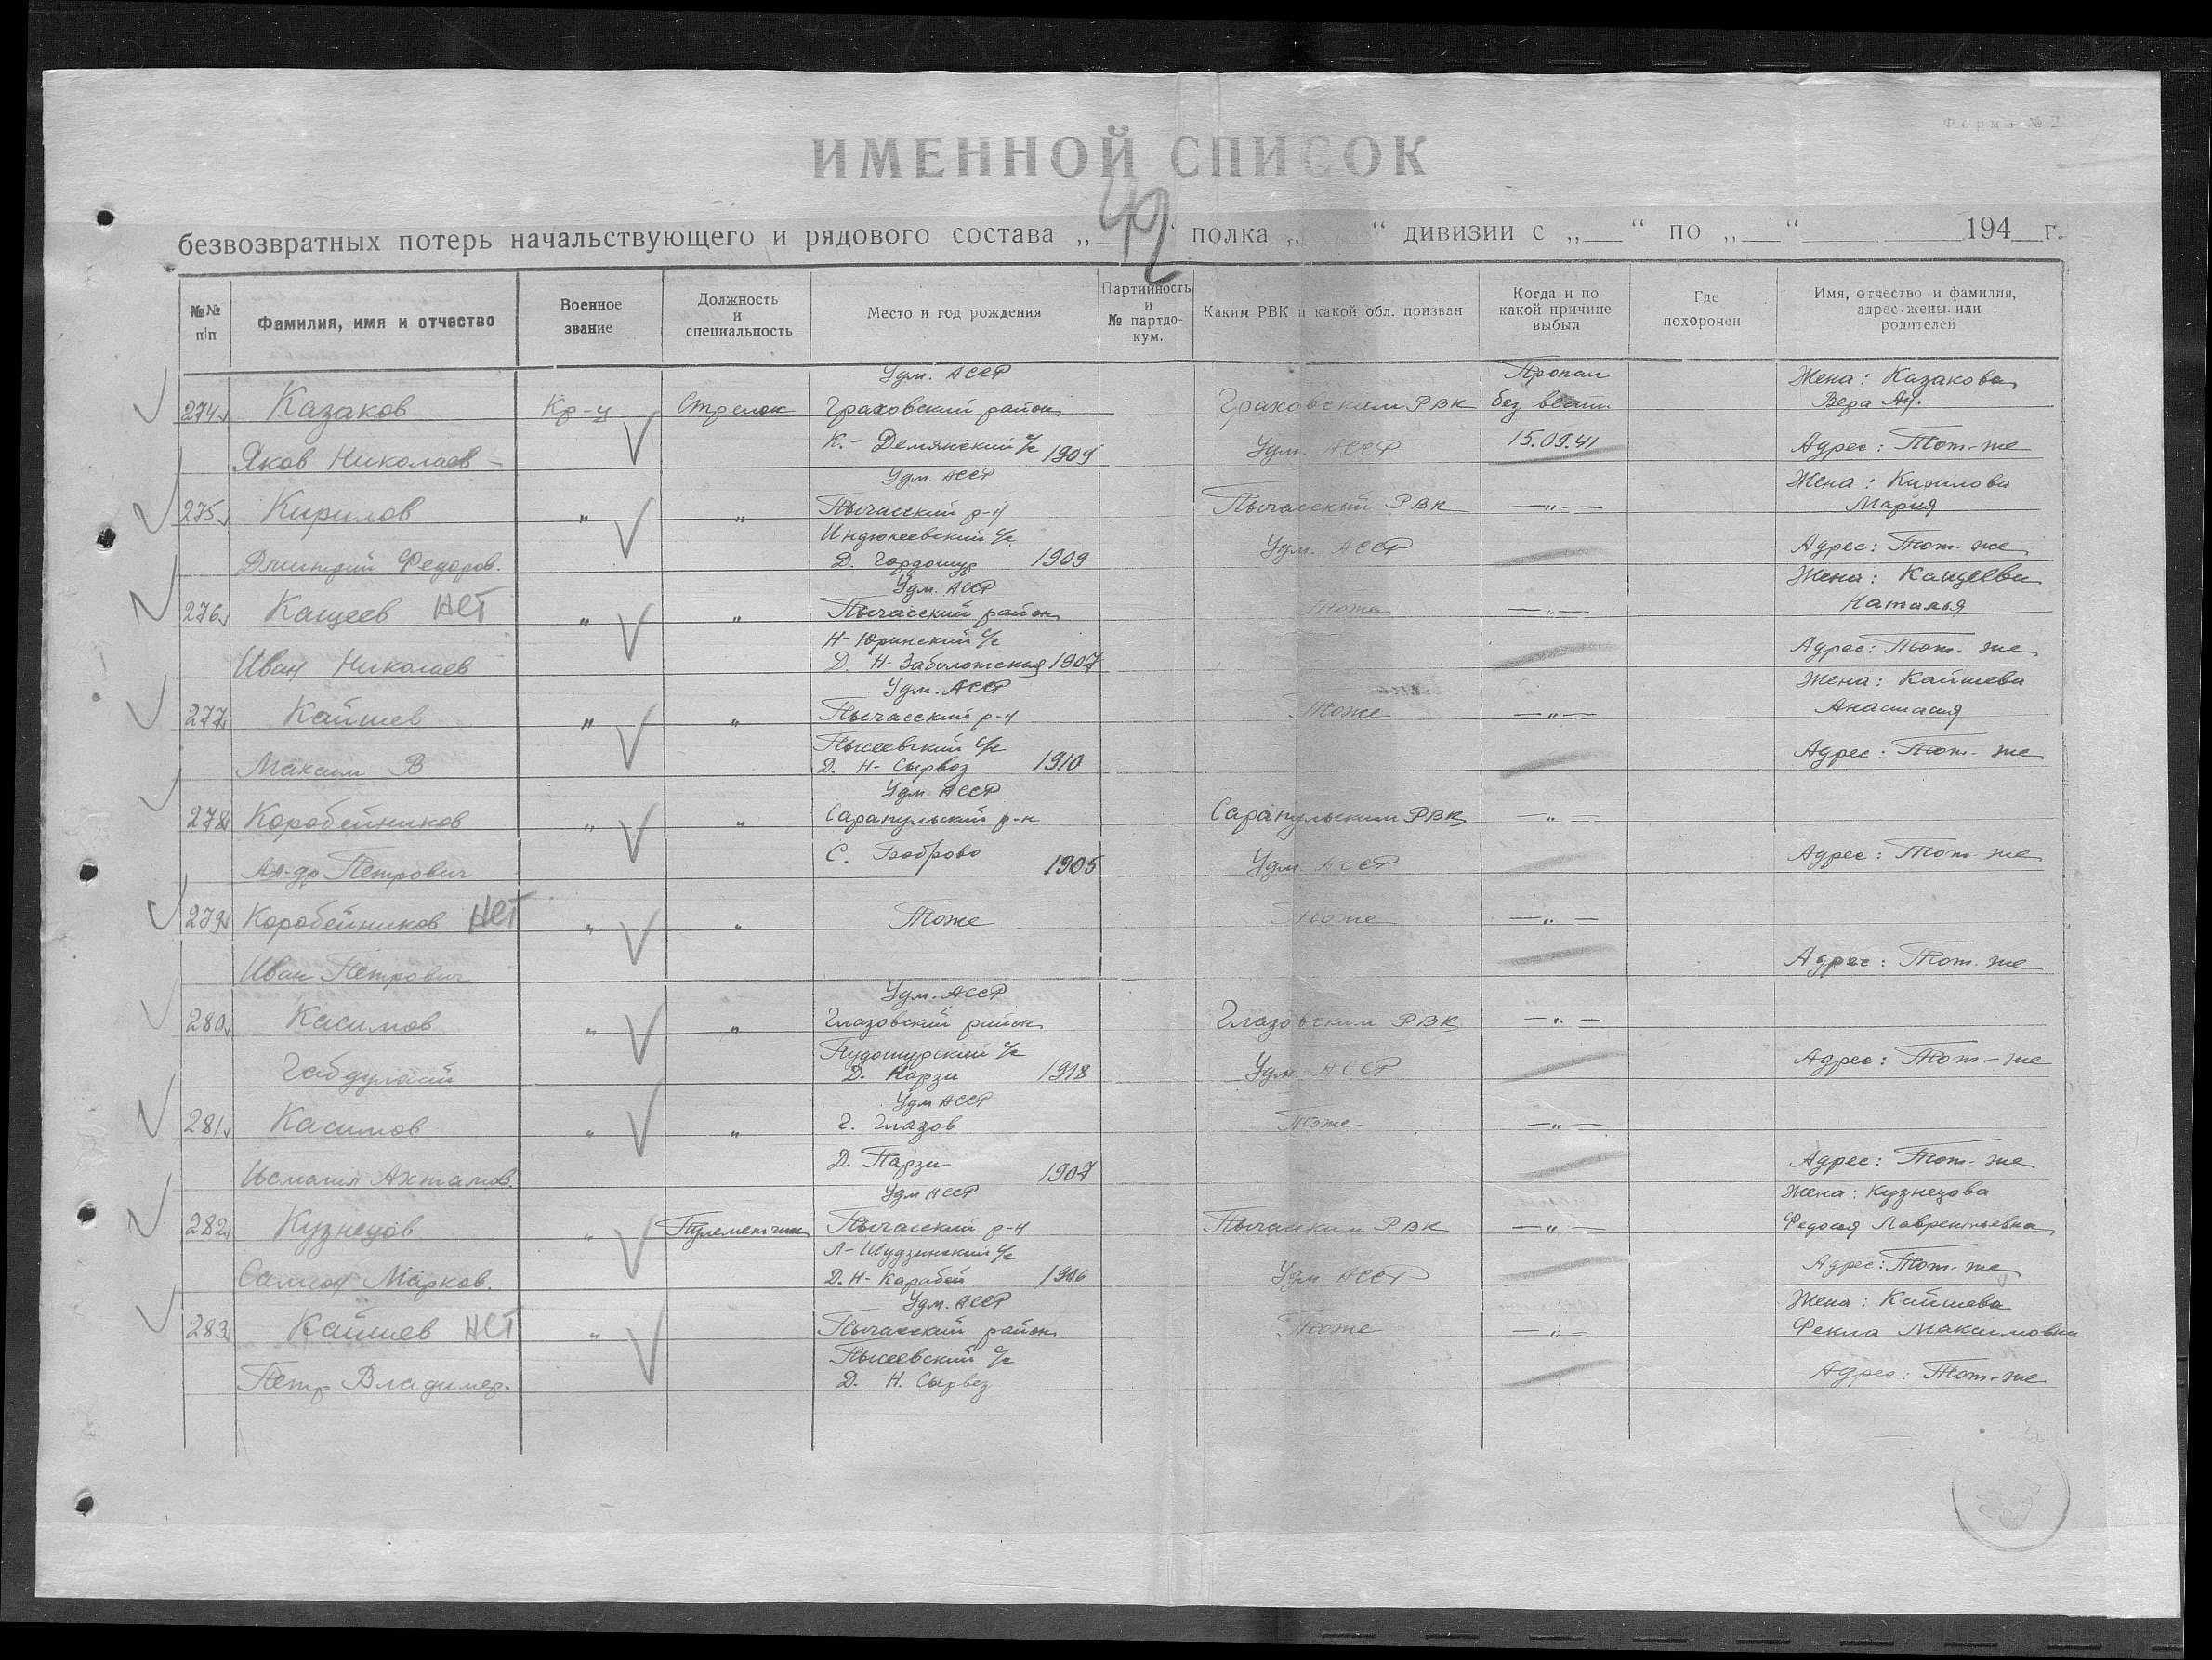 Форма № 2
ИМЕННОЙ СПИСОК
42
безвозвратных потерь начальствующего и рядового состава „___“ полка „___“ дивизии с „__“ по „__“ ______ 194__г.
№№ п/п | Фамилия, имя и отчество | Военное звание | Должность и специальность | Место и год рождения | Партийность и № партдокум. | Каким РВК и какой обл. призван | Когда и по какой причине выбыл | Где похоронен | Имя, отчество и фамилия, адрес жены или родителей
Удм. АССР Пропал Жена: Казакова
274 Казаков Кр-ц Стрелок Граховский район Граховским РВК без вести Вера
К.- Демянский с/с 1909 Удм. АССР 15.09.41 Адрес: Тот-же
Яков Николаев-
Удм. АССР Жена: Кирилова
275 Кирилов „ „ Пычасский р-н Пычасский РВК —„— Мария
Индюкеевский с/с
Дмитрий Федоров. Д. Гордошур 1909 Удм. АССР Адрес: Тот-же
Удм. АССР Жена: Кащеева
276 Кащеев НЕТ „ „ Пычасский район Тоже —„— Наталья
Н-Юринский с/с
Иван Николаев Д. Н-Заболотская 1907 Адрес: Тот-же
Удм. АССР Жена: Кайшева
277 Кайшев „ „ Пычасский р-н Тоже —„— Анастасия
Пысеевский с/с
Максим В Д. Н-Сырвоз 1910 Адрес: Тот-же
Удм. АССР
278 Коробейников „ „ Сарапульский р-н Сарапульским РВК —„—
С. Боброво
Ал-др Петрович 1905 Удм. АССР Адрес: Тот-же
279 Коробейников НЕТ „ „ Тоже Тоже —„—
Иван Петрович Адрес: Тот-же
Удм. АССР
280 Касимов „ „ Глазовский район Глазовским РВК —„—
Пудошурский с/с
Д. Карза 1918 Удм. АССР Адрес: Тот-же
Удм АССР
281 Касимов „ „ г. Глазов Тоже —„—
Д. Парзи 1907 Адрес: Тот-же
Исмагил
Удм АССР Жена: Кузнецова
282 Кузнецов „ Пулеметчик Пычасский р-н Пычаским РВК —„— Федосия Лаврентьевна
Л-Шудзинский с/с
Самсон Марков. Д. Н-Карабай 1906 Удм. АССР Адрес: Тот-же
Удм. АССР Жена: Кайшева
283 Кайшев НЕТ „ Пычасский район Тоже —„— Фекла Максимовна
Пысеевский с/с
Петр Владимер. Д. Н. Сырвез Адрес: Тот-же